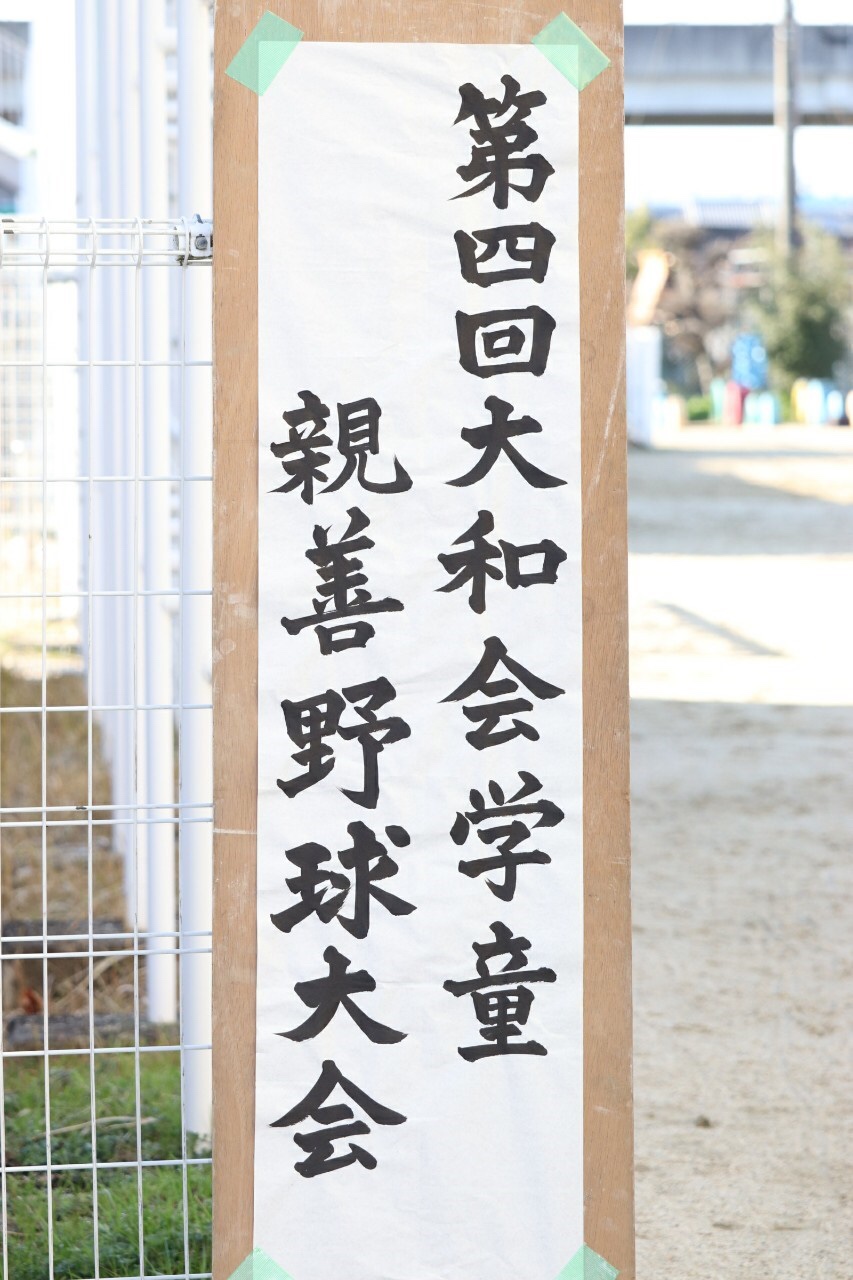 第四回大和会学童
親善野球大会